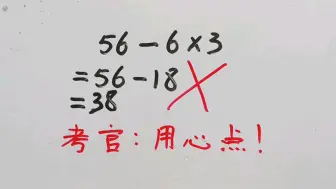 56－6×3
=56－18
=38
考官：用心点！